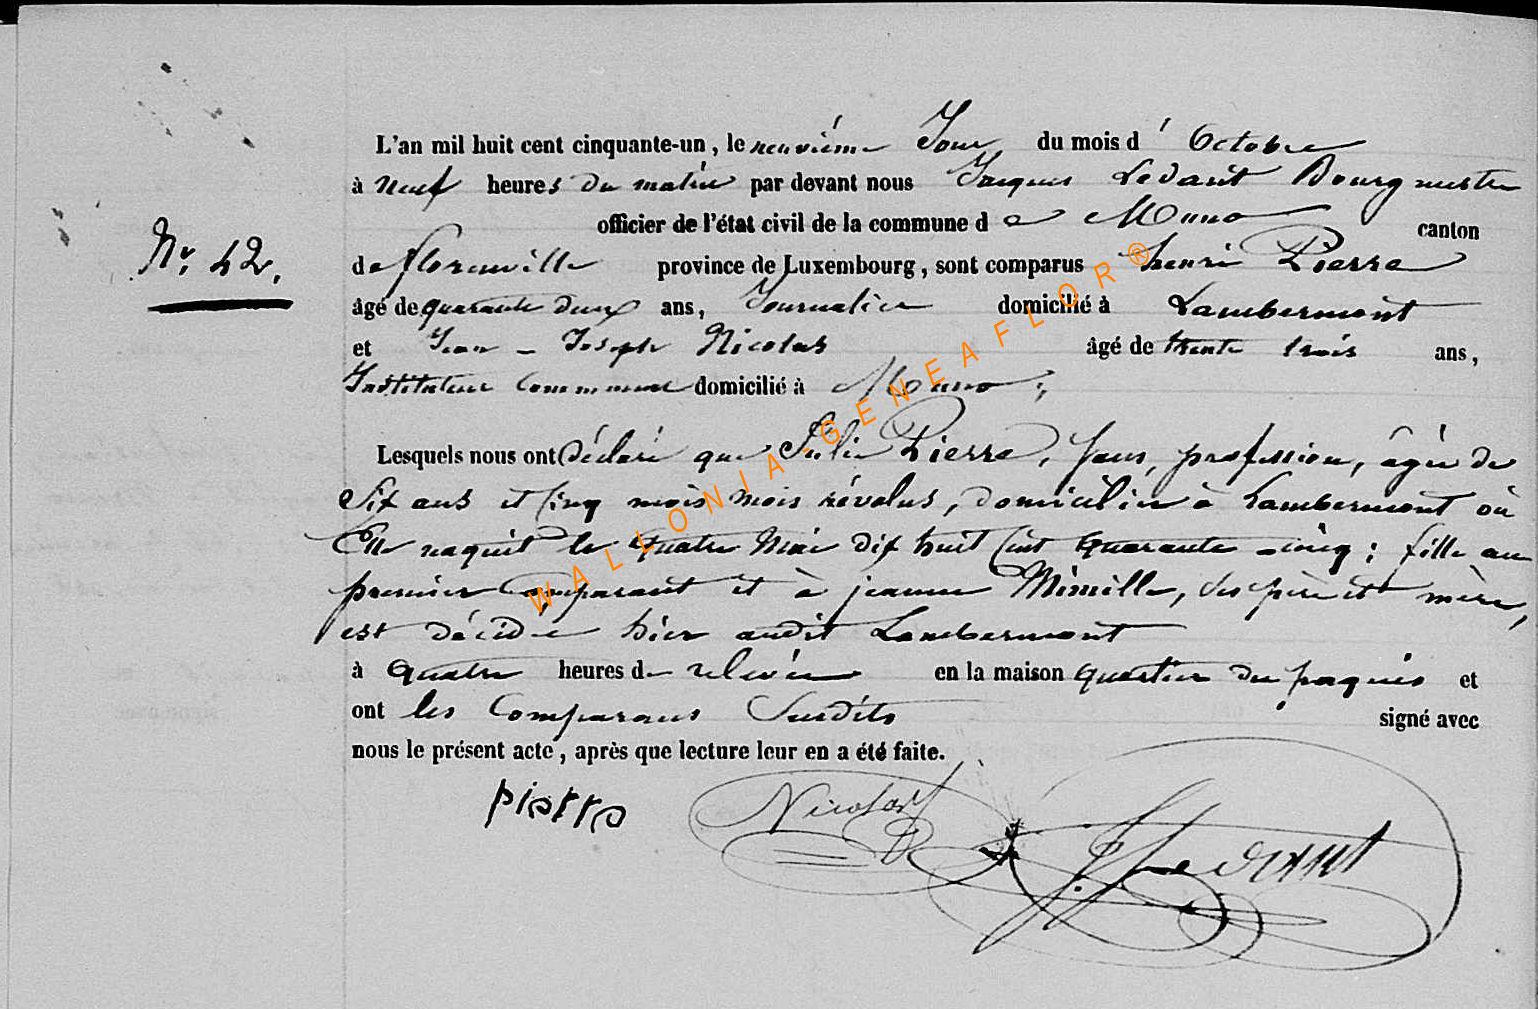 L'an mil huit cent cinquante-un, le neuvième Jour du mois d' Octobre
à neuf heures du matin par devant nous Jacques Ledant Bourgmestre
officier de l'état civil de la commune de Muno canton
Nr. 42. de florenville province de Luxembourg, sont comparus henri Pierre
âgé de quarante deux ans, Journalier domicilié à Lambermont
et Jean - Joseph Nicolas âgé de trente trois ans,
Instituteur Communal domicilié à Muno ;
Lesquels nous ont déclaré que Julie Pierre, sans profession, âgée de
Six ans et Cinq mois mois révolus, domiciliée à Lambermont où
Elle naquit le quatre Mai dix huit Cent quarante -cinq ; fille au
premier Comparant et à jeanne Mimille, ses père et mère,
est décédée hier audit Lambermont
à quatre heures de relevée en la maison quartier du paquis et
ont les Comparans Susdits signé avec
nous le présent acte, après que lecture leur en a été faite.
pierre Nicolas J. Ledant
WALLONIA-GENEAFLOR®